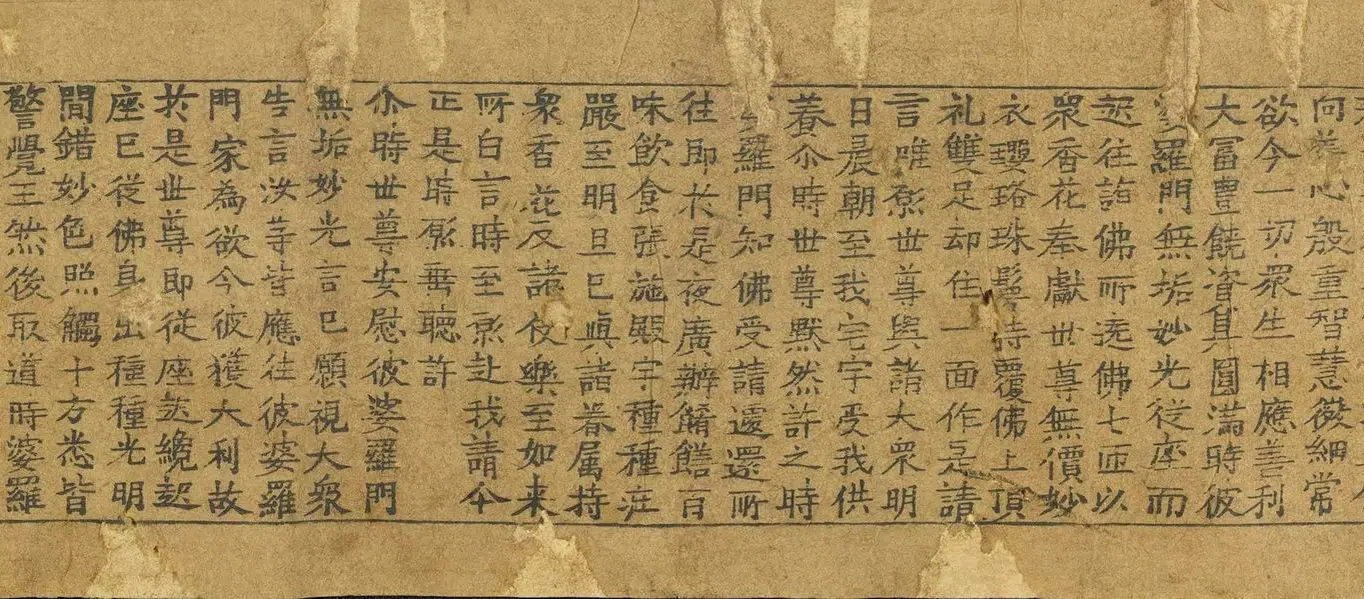 向善心殷重智慧微細常
欲今一切衆生相應善利
大冨豊饒資具圓滿時彼
婆羅門無垢妙光從座而
起往詣佛所遶佛七匝以
衆香花奉獻世尊無價妙
衣瓔珞珠鬘持覆佛上頂
礼雙足却住一面作是請
言唯願世尊與諸大衆明
日晨朝至我宅宇受我供
養尒時世尊默然許之時
婆羅門知佛受請還還所
往即於是夜廣辦餚饍百
味飲食張施殿宇種種庄
嚴至明旦已與諸眷属持
衆香花及諸伎樂至如来
所白言時至願赴我請今
正是時願垂聽許
尒時世尊安慰彼婆羅門
無垢妙光言已願視大衆
告言汝等皆應往彼婆羅
門家為欲今彼獲大利故
於是世尊即從座起纔起
座已從佛身出種種光明
間錯妙色照觸十方悉皆
警覺王然後取道時婆羅